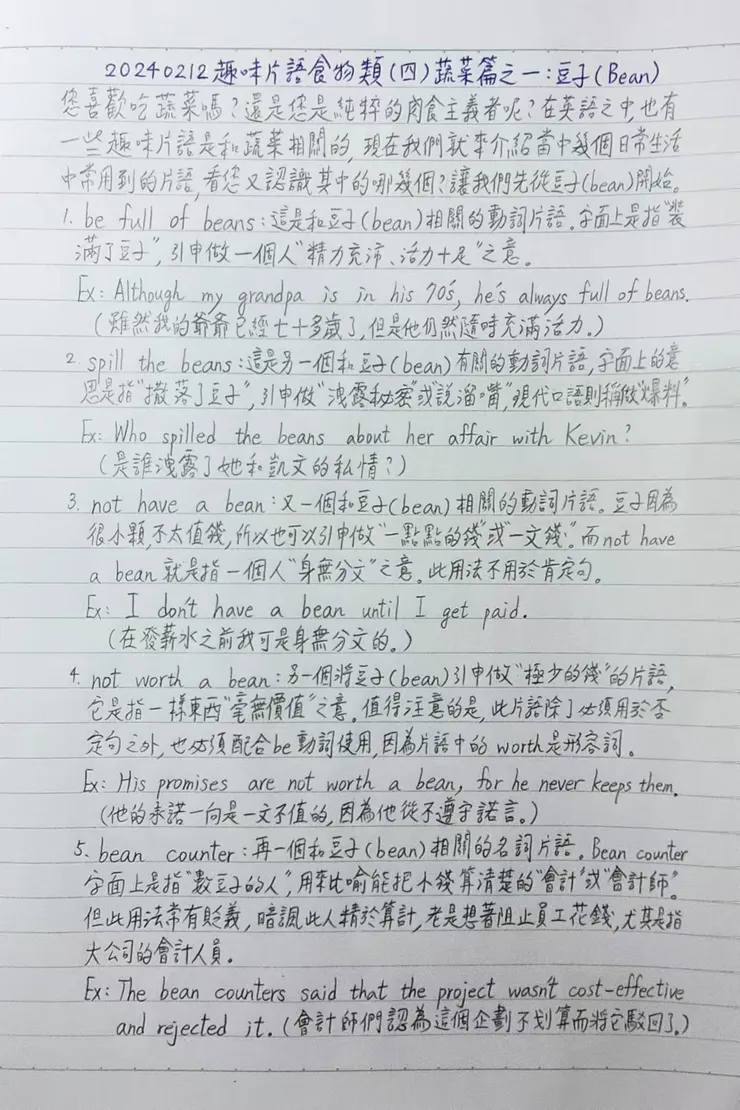 20240212趣味片語食物類(四)蔬菜篇之一:豆子(Bean)
您喜歡吃蔬菜嗎?還是您是純粹的肉食主義者呢?在英語之中,也有
一些趣味片語是和蔬菜相關的,現在我們就來介紹當中幾個日常生活
中常用到的片語,看您又認識其中的哪幾個?讓我們先從豆子(bean)開始。
1. be full of beans:這是和豆子(bean)相關的動詞片語。字面上是指"裝
滿了豆子",引申做一個人"精力充沛、活力十足"之意。
Ex: Although my grandpa is in his 70's, he's always full of beans.
(雖然我的爺爺已經七十多歲了,但是他仍然隨時充滿活力。)
2. spill the beans:這是另一個和豆子(bean)有關的動詞片語,字面上的意
思是指"撒落了豆子",引申做"洩露秘密"或"說溜嘴",現代口語則稱做"爆料"。
Ex: Who spilled the beans about her affair with Kevin?
(是誰洩露了她和凱文的私情?)
3. not have a bean:又一個和豆子(bean)相關的動詞片語。豆子因為
很小顆,不太值錢,所以也可以引申做"一點點的錢"或"一文錢"。而not have
a bean 就是指一個人"身無分文"之意。此用法不用於肯定句。
Ex: I don't have a bean until I get paid.
(在發薪水之前我可是身無分文的。)
4. not worth a bean:另一個將豆子(bean)引申做"極少的錢"的片語,
它是指一樣東西"毫無價值"之意。值得注意的是,此片語除了必須用於否
定句之外,也必須配合be動詞使用,因為片語中的worth是形容詞。
Ex: His promises are not worth a bean, for he never keeps them.
(他的承諾一向是一文不值的,因為他從不遵守諾言。)
5. bean counter:再一個和豆子(bean)相關的名詞片語。Bean counter
字面上是指"數豆子的人",用來比喻能把小錢算清楚的"會計"或"會計師"。
但此用法常有貶義,暗諷此人精於算計,老是想著阻止員工花錢,尤其是指
大公司的會計人員。
Ex: The bean counters said that the project wasn't cost-effective
and rejected it.(會計師們認為這個企劃不划算而將它駁回了。)